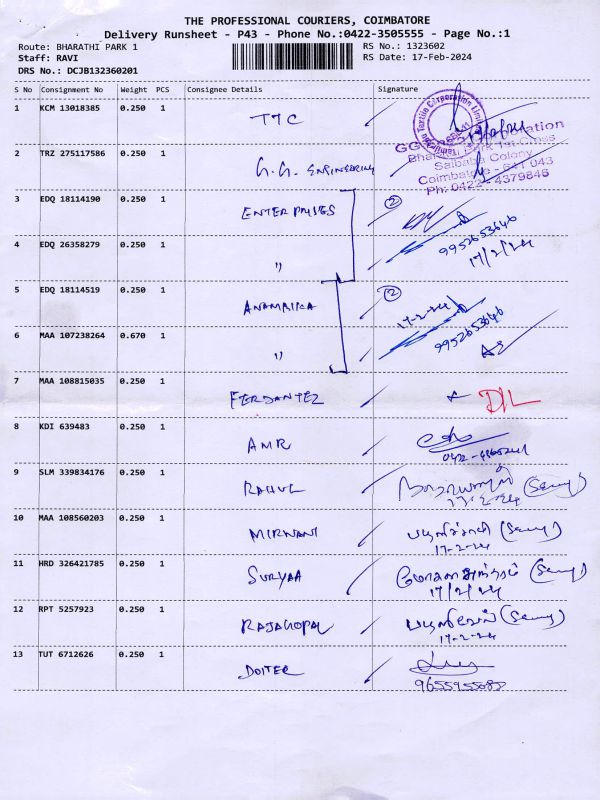 THE PROFESSIONAL COURIERS, COIMBATORE
Delivery Runsheet - P43 - Phone No.:0422-3505555 - Page No.:1
Route: BHARATHI PARK 1 RS No.: 1323602
Staff: RAVI RS Date: 17-Feb-2024
DRS No.: DCJB132360201
S No Consignment No Weight PCS Consignee Details Signature
1 KCM 13018385 0.250 1 TTC
Corporation
2 TRZ 275117586 0.250 1 G.G. ENGINEERING
Saibaba Colony
Coimbatore - 641 043
Ph: 0422 - 4379846
3 EDQ 18114190 0.250 1 ENTERPRISES 2
9952653646
17/2/24
4 EDQ 26358279 0.250 1 "
5 EDQ 18114519 0.250 1 ANAMRIKA 2
17-2-24
9952653646
6 MAA 107238264 0.670 1 "
7 MAA 108815035 0.250 1 FERDANTEZ D/L
8 KDI 639483 0.250 1 AMR
9 SLM 339834176 0.250 1 RAHUL
17-2-24
10 MAA 108560203 0.250 1 MIRNANI
17-2-24
11 HRD 326421785 0.250 1 SURYAA
17/2/24
12 RPT 5257923 0.250 1 RAJAGOPAL
17-2-24
13 TUT 6712626 0.250 1 DOITEC